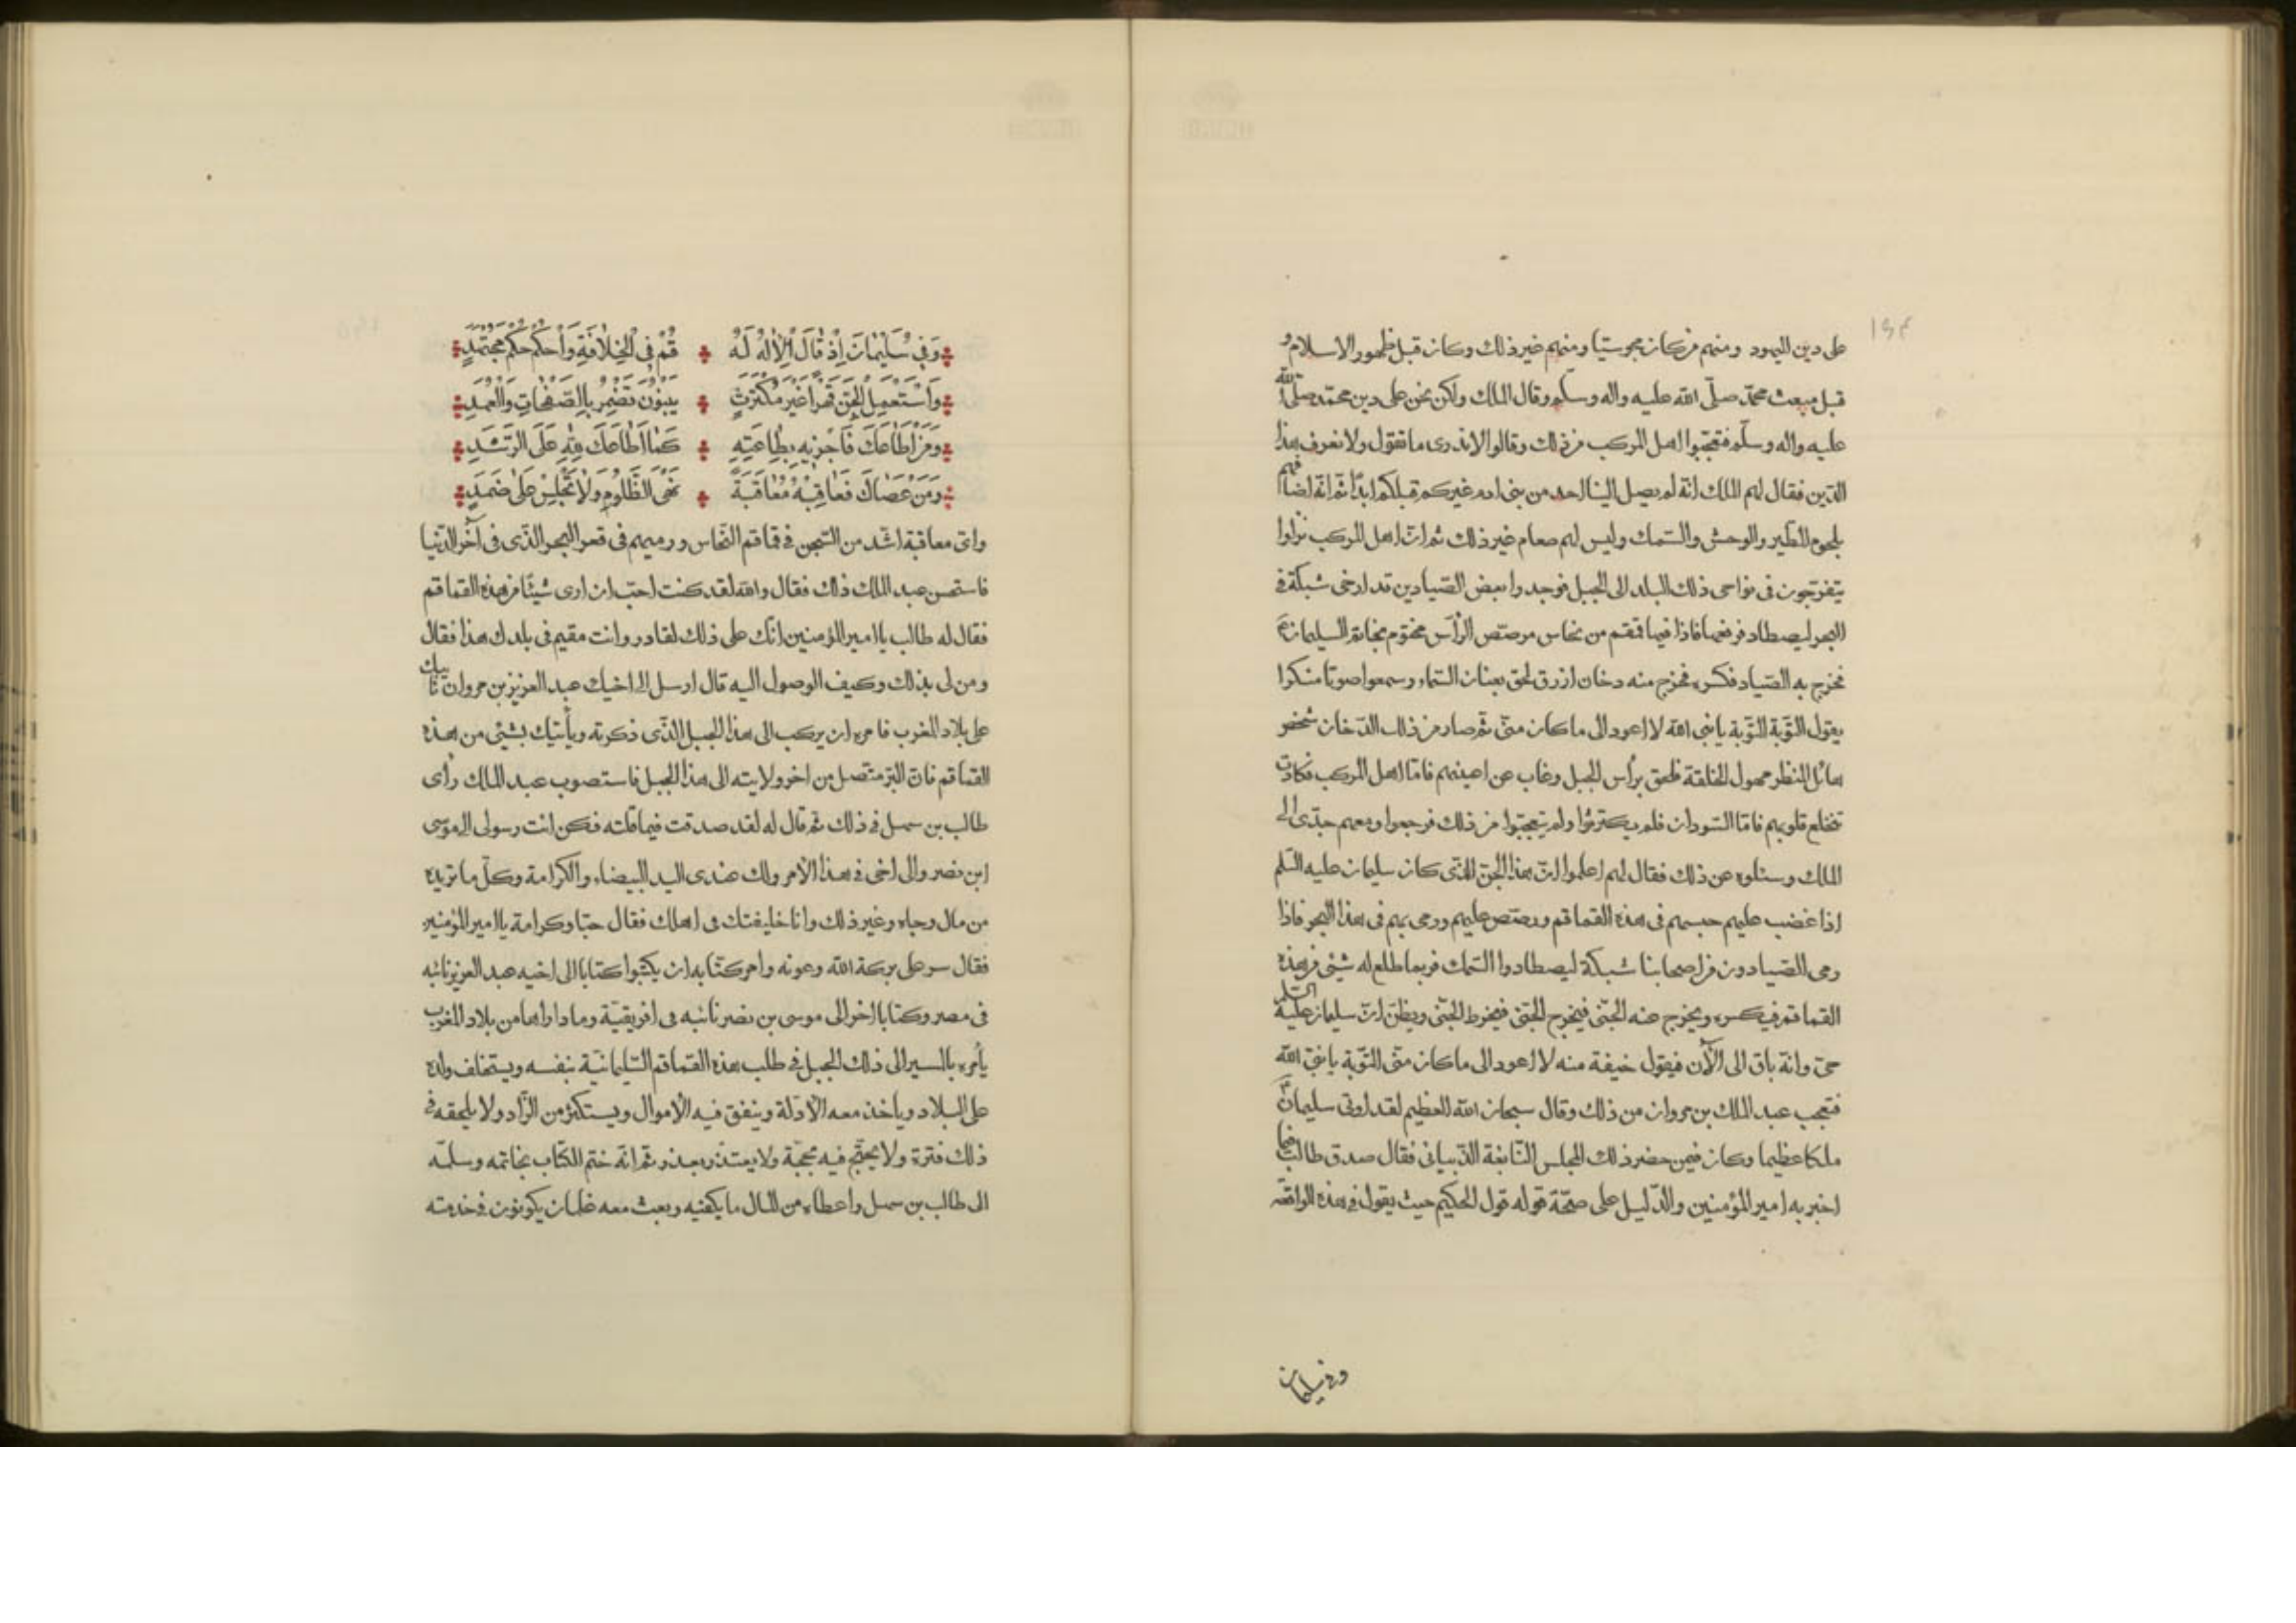 ١٩٤
على دين اليهود ومنهم من كان مجوسيّا ومنهم غير ذلك وكان قبل ظهور الاسلام و
قبل مبعث محمّد صلّى الله عليه واله وسلّم وقال الملك ولكن نحن على دين محمّد صلّى الله
عليه واله وسلّم فتعجّبوا اهل المركب من ذلك وقالوا لا ندرى ما تقول ولا نعرف هذا
الدّين فقال لهم الملك انّه لم يصل الينا احد من بنى ادم غيركم قبلكم ابدًا ثم انّه اضافهم
بلحوم الطّير والوحش والسّمك وليس لهم صعام غير ذلك ثم انّ اهل المركب نزلوا
يتفرّجون فى نواحى ذلك البلد الى الجبل فوجدوا بعض الصّيادين قد ارخى شبكة فى
البحر ليصطاد فرفعها فاذا فيها قمقم من نحاس مرصّص الرأس مختوم بخاتم السليمان ع
فخرج به الصّياد فكسره فخرج منه دخان ازرق لحق بعنان السّماء وسمعوا صوتا منكرا
يقول التّوبة التّوبة يا نبى الله لا اعود الى ما كان منّى ثم صار من ذلك الدّخان شخص
هائل المنظر مهول الخلقة فلحق برأس الجبل وغاب عن اعينهم فامّا اهل المركب فكادت
تنخلع قلوبهم فامّا السّودان فلم يكترثوا ولم يتعجّبوا من ذلك فرجعوا ومعهم حتّى الى
الملك وسئلوه عن ذلك فقال لهم اعلموا انّ هذا الجنّ الذّى كان سليمان عليه السّلم
اذا غضب عليهم حبسهم فى هذه القماقم ورصّص عليهم ورمى بهم فى هذا البحر فاذا
رمى الصّيادون من اصحابنا شبكة ليصطادوا السّمك فربما طلع له شيئى من هذه
القماقم فيكسره ويخرج عنه الجنّى فيخرج الجنّى فيخرط الجنّى ويظنّ انّ سليمان عليه السّلم
حىّ وانّه باق الى الآن فيقول خيفة منه لا اعود الى ما كان منّى التّوبة يا نبىّ الله
فتعجب عبد الملك بن مروان من ذلك وقال سبحان الله العظيم لقد اوتى سليمان
ملكا عظيما وكان فيمن حضر ذلك المجلس النّابغة الذّبيانى فقال صدق طالب فيما
اخبر به امير المؤمنين والدّليل على صحّة قوله قول الحكيم حيث يقول فى هذه الواقعة
وفى سليمان
وَفِى سُلَيْمَانَ اِذْ قَالَ الْاِلٰهُ لَهُ قُمْ فِى الْخِلَافَةِ وَاحْكُمْ حُكْمَ مُجْتَهِدٍ
وَاسْتَعْمِلِ الْجِنَّ قَهْرًا غَيْرَ مُكْتَرِثٍ يَبْنُونَ تَضْمِرُ بِالصَّفَحَاتِ وَالْعَمَدِ
وَمَنْ اَطَاعَكَ فَاَجْزِيهِ بِطَاعَتِهِ كَمَا اَطَاعَكَ لِلّٰهِ عَلَى الرَّشَدِ
وَمَنْ عَصَاكَ فَعَاقِبْهُ مُعَاقَبَةً نَهَى الظَّلُومِ وَلَا تَجْلِسْ عَلَى ضَمَدٍ
واىّ معاقبة اشّد من السّجن فى قماقم النّحاس ورميهم فى قعر البحر الذّى فى آخر الدّنيا
فاستحسن عبد الملك ذلك فقال والله لقد كنت احبّ ان ارى شيئًا من هذه القماقم
فقال له طالب يا امير المؤمنين انّك على ذلك لقادر وانت مقيم فى بلدك هذا فقال
ومن لى بذلك وكيف الوصول اليه قال ارسل الى اخيك عبد العزيز بن مروان نائبك
على بلاد المغرب فامره ان يركب الى هذا الجبل الذّى ذكرته ويأتيك بشيئى من هذه
القماقم فانّ البرّ متّصل من اخر ولايته الى هذا الجبل فاستصوب عبد الملك رأى
طالب بن سهل فى ذلك ثم قال له لقد صدقت فيما قلته فكن انت رسولى الى موسى
ابن نصر والى اخى فى هذا الأمر ولك عندى اليد البيضاء والكرامة وكلّ ما تريده
من مال وجاه وغير ذلك وانا خليفتك فى اهلك فقال حبّا وكرامة يا امير المؤمنين
فقال سر على بركة الله وعونه وامر كتّابه ان يكتبوا كتابا الى اخيه عبد العزيز نائبه
فى مصر وكتابا اخر الى موسى بن نصر نائبه فى افريقيّة وما داراها من بلاد المغرب
يأمره بالسير الى ذلك الجبل فى طلب هذه القماقم السّليمانيّة بنفسه ويستخلف ولده
على البلاد ويأخذ معه الأدلّة وينفق فيه الأموال ويستكثر من الزّاد ولا يلحقه فى
ذلك فترة ولا يحتجّ فيه بحجّة ولا يعتذر بعذر ثم انّه ختم الكتاب بخاتمه وسلّمه
الى طالب بن سهل واعطاه من المال ما يكفيه وبعث معه غلمان يكونون فى خدمته